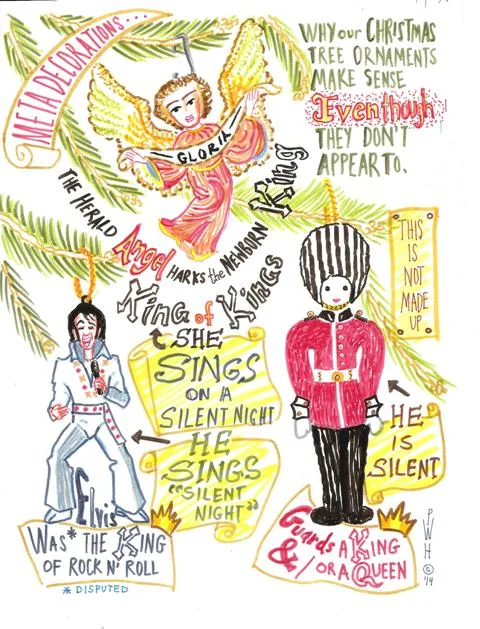 META DECORATIONS...
WHY our CHRISTMAS
TREE ORNAMENTS
MAKE SENSE
Even though
THEY DON'T
APPEAR TO.
GLORIA
THE HERALD
Angel HARKS the NEWBORN King
King of Kings
THIS
IS
NOT
MADE
UP
SHE
SINGS
ON A
SILENT NIGHT
HE
SINGS
"SILENT
NIGHT"
HE
IS
SILENT
Elvis
WAS* THE KING
OF ROCK N' ROLL
* DISPUTED
Guards A KING
&/OR A QUEEN
PWH
© '14